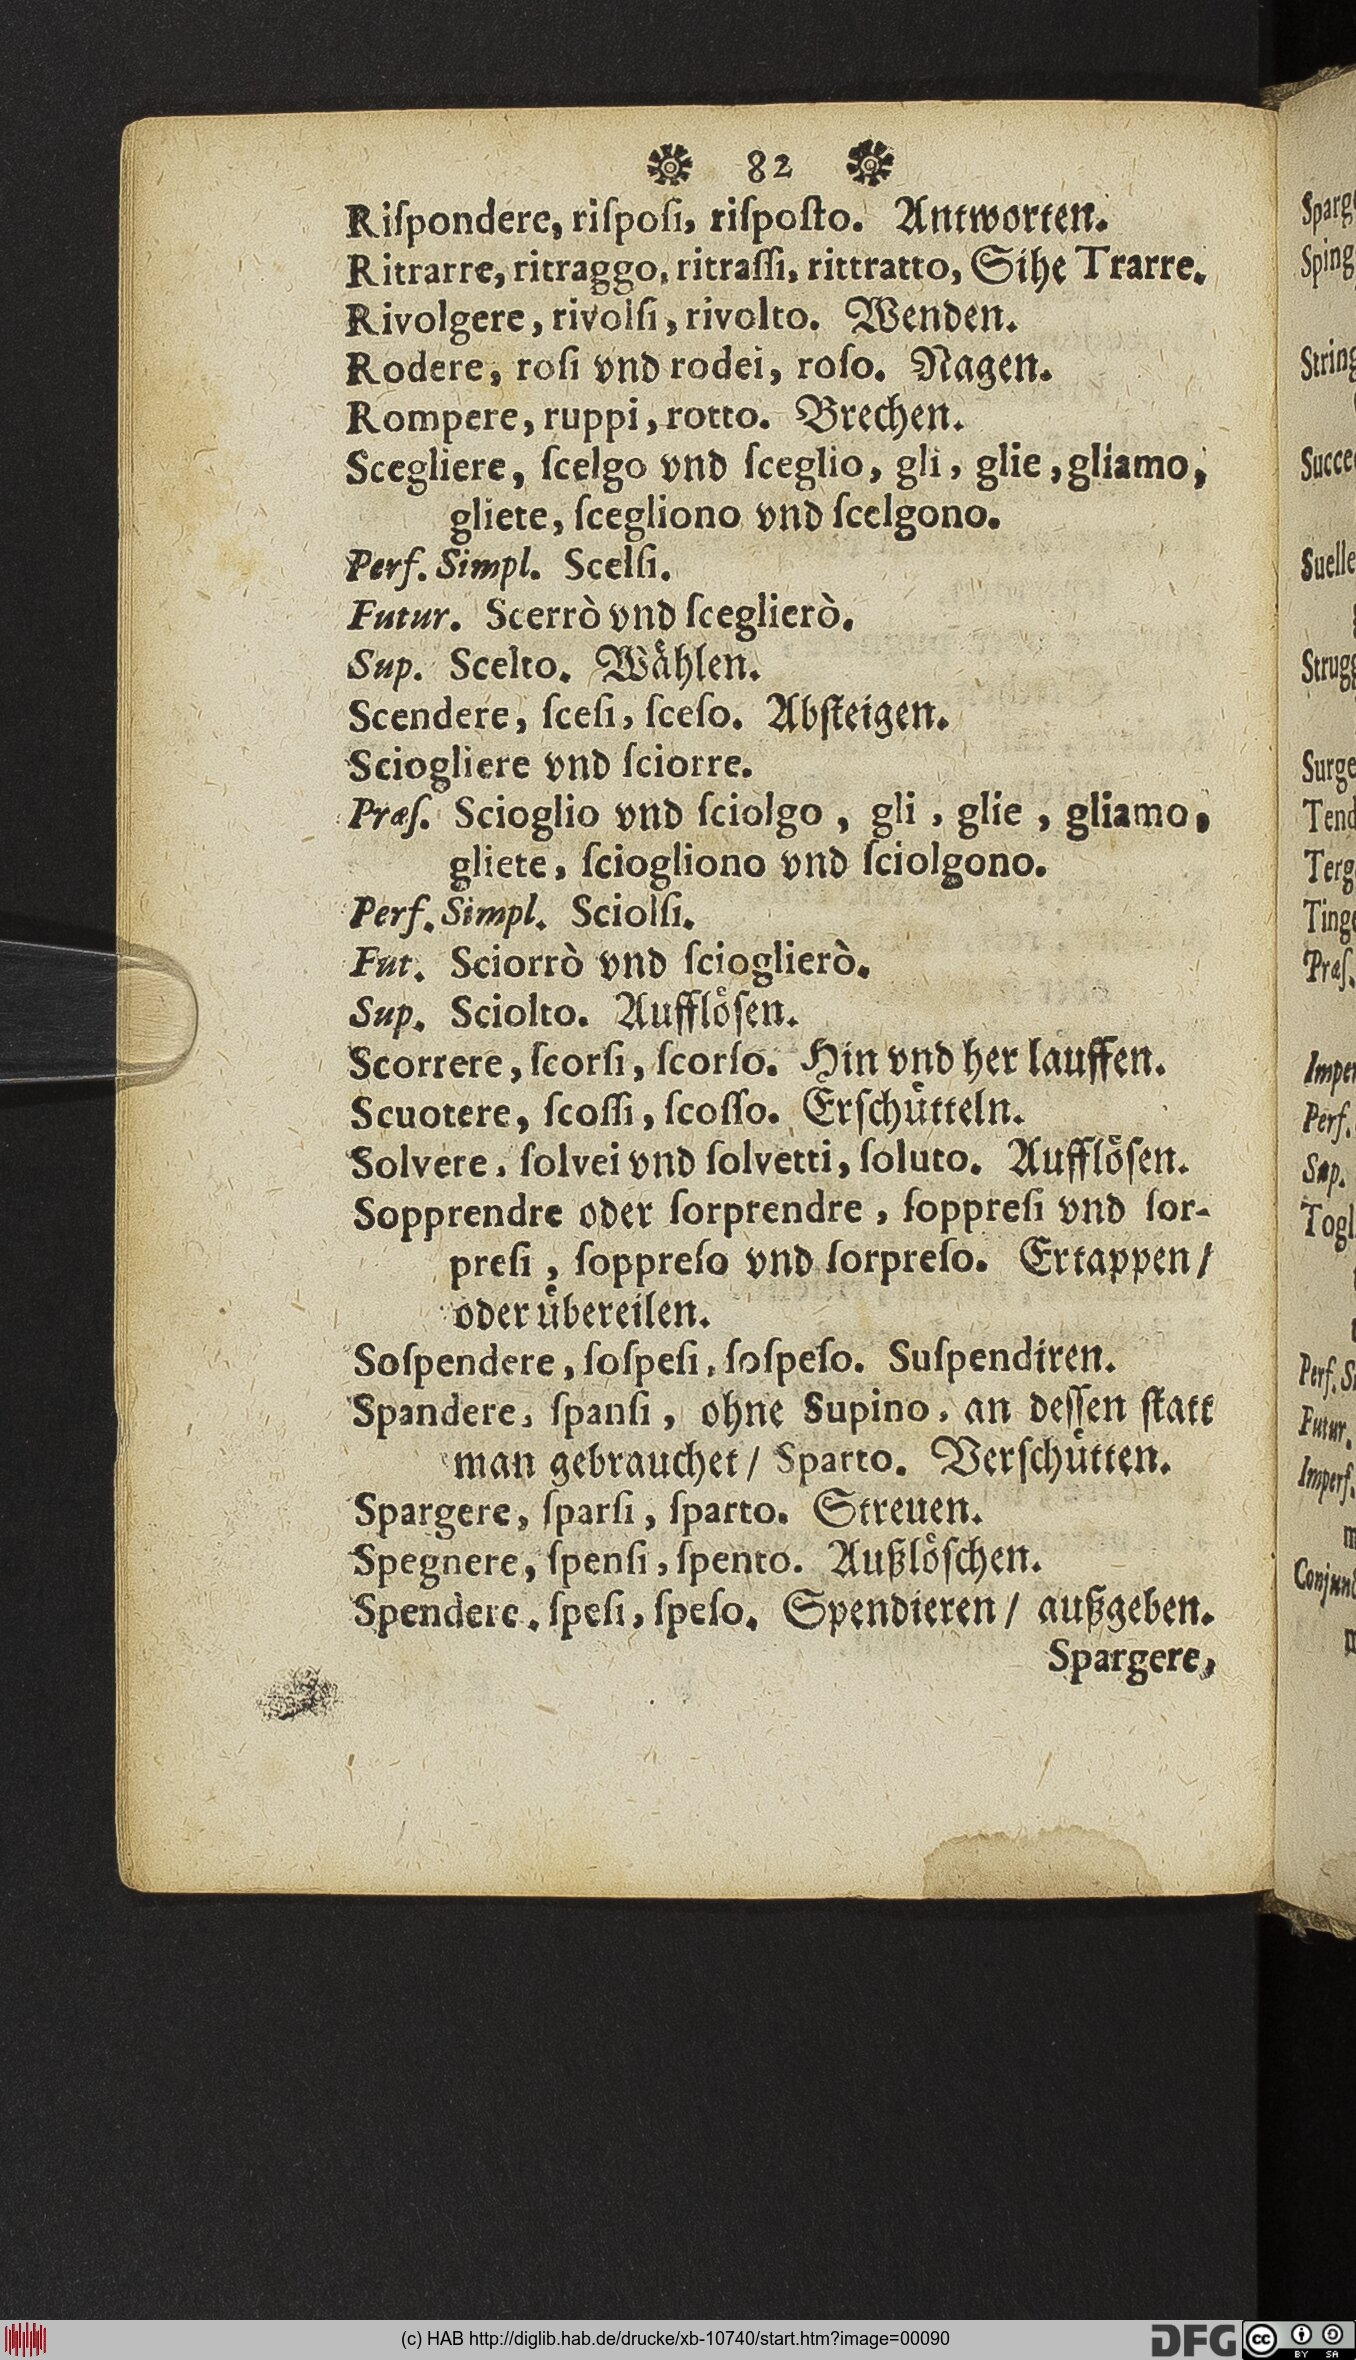 82
Riſpondere, riſpoſi, riſpoſto. Antworten.
Ritrarre, ritraggo, ritraſſi, rittratto, Sihe Trarre.
Rivolgere, rivolſi, rivolto. Wenden.
Rodere, roſi vnd rodei, roſo. Nagen.
Rompere, ruppi, rotto. Brechen.
Scegliere, ſcelgo vnd ſceglio, gli, glie, gliamo,
gliete, ſcegliono vnd ſcelgono.
Perf. Simpl. Scelſi.
Futur. Scerrò vnd ſceglierò.
Sup. Scelto. Waͤhlen.
Scendere, ſceſi, ſceſo. Abſteigen.
Sciogliere vnd ſciorre.
Præſ. Scioglio vnd ſciolgo, gli, glie, gliamo,
gliete, ſciogliono vnd ſciolgono.
Perf. Simpl. Sciolſi.
Fut. Sciorrò vnd ſcioglierò.
Sup. Sciolto. Auffloͤſen.
Scorrere, ſcorſi, ſcorſo. Hin vnd her lauffen.
Scuotere, ſcoſſi, ſcoſſo. Erſchuͤtteln.
Solvere, ſolvei vnd ſolvetti, ſoluto. Auffloͤſen.
Sopprendre oder ſorprendre, ſoppreſi vnd ſor-
preſi, ſoppreſo vnd ſorpreſo. Ertappen/
oder uͤbereilen.
Soſpendere, ſoſpeſi, ſoſpeſo. Suſpendiren.
Spandere, ſpanſi, ohne Supino, an deſſen ſtatt
man gebrauchet/ Sparto. Verſchuͤtten.
Spargere, ſparſi, ſparto. Streuen.
Spegnere, ſpenſi, ſpento. Außloͤſchen.
Spendere, ſpeſi, ſpeſo. Spendieren/ außgeben.
Spargere,
Sping
String
Succe
Suelle
Strugg
Surge
Tend
Terg
Ting
Præſ.
Imper
Perf.
Sup.
Togl
Perf. S
Futur.
Imperf.
(c) HAB http://diglib.hab.de/drucke/xb-10740/start.htm?image=00090
DFG
cc
BY SA